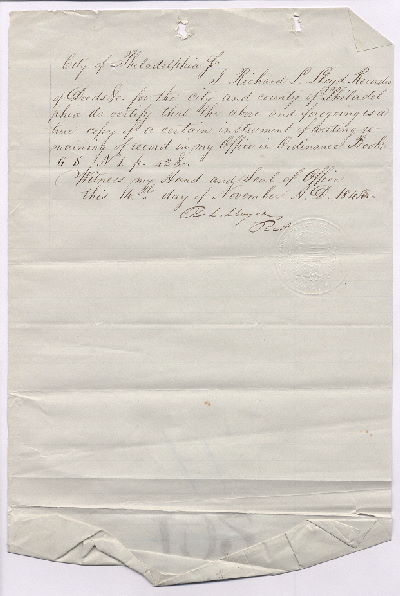 City of Philadelphia ss.
I Richard L. Lloyd Recorder
of Deeds &c. for the city and county of Philadel
phia do certify that the above and foregoing is a
true copy of a certain instrument of writing re
maining of record in my Office in Ordinance Book
G S N 1. p. 428.
Witness my Hand and Seal of Office
this 14th day of November A.D. 18
R. L. Lloyd
Rec